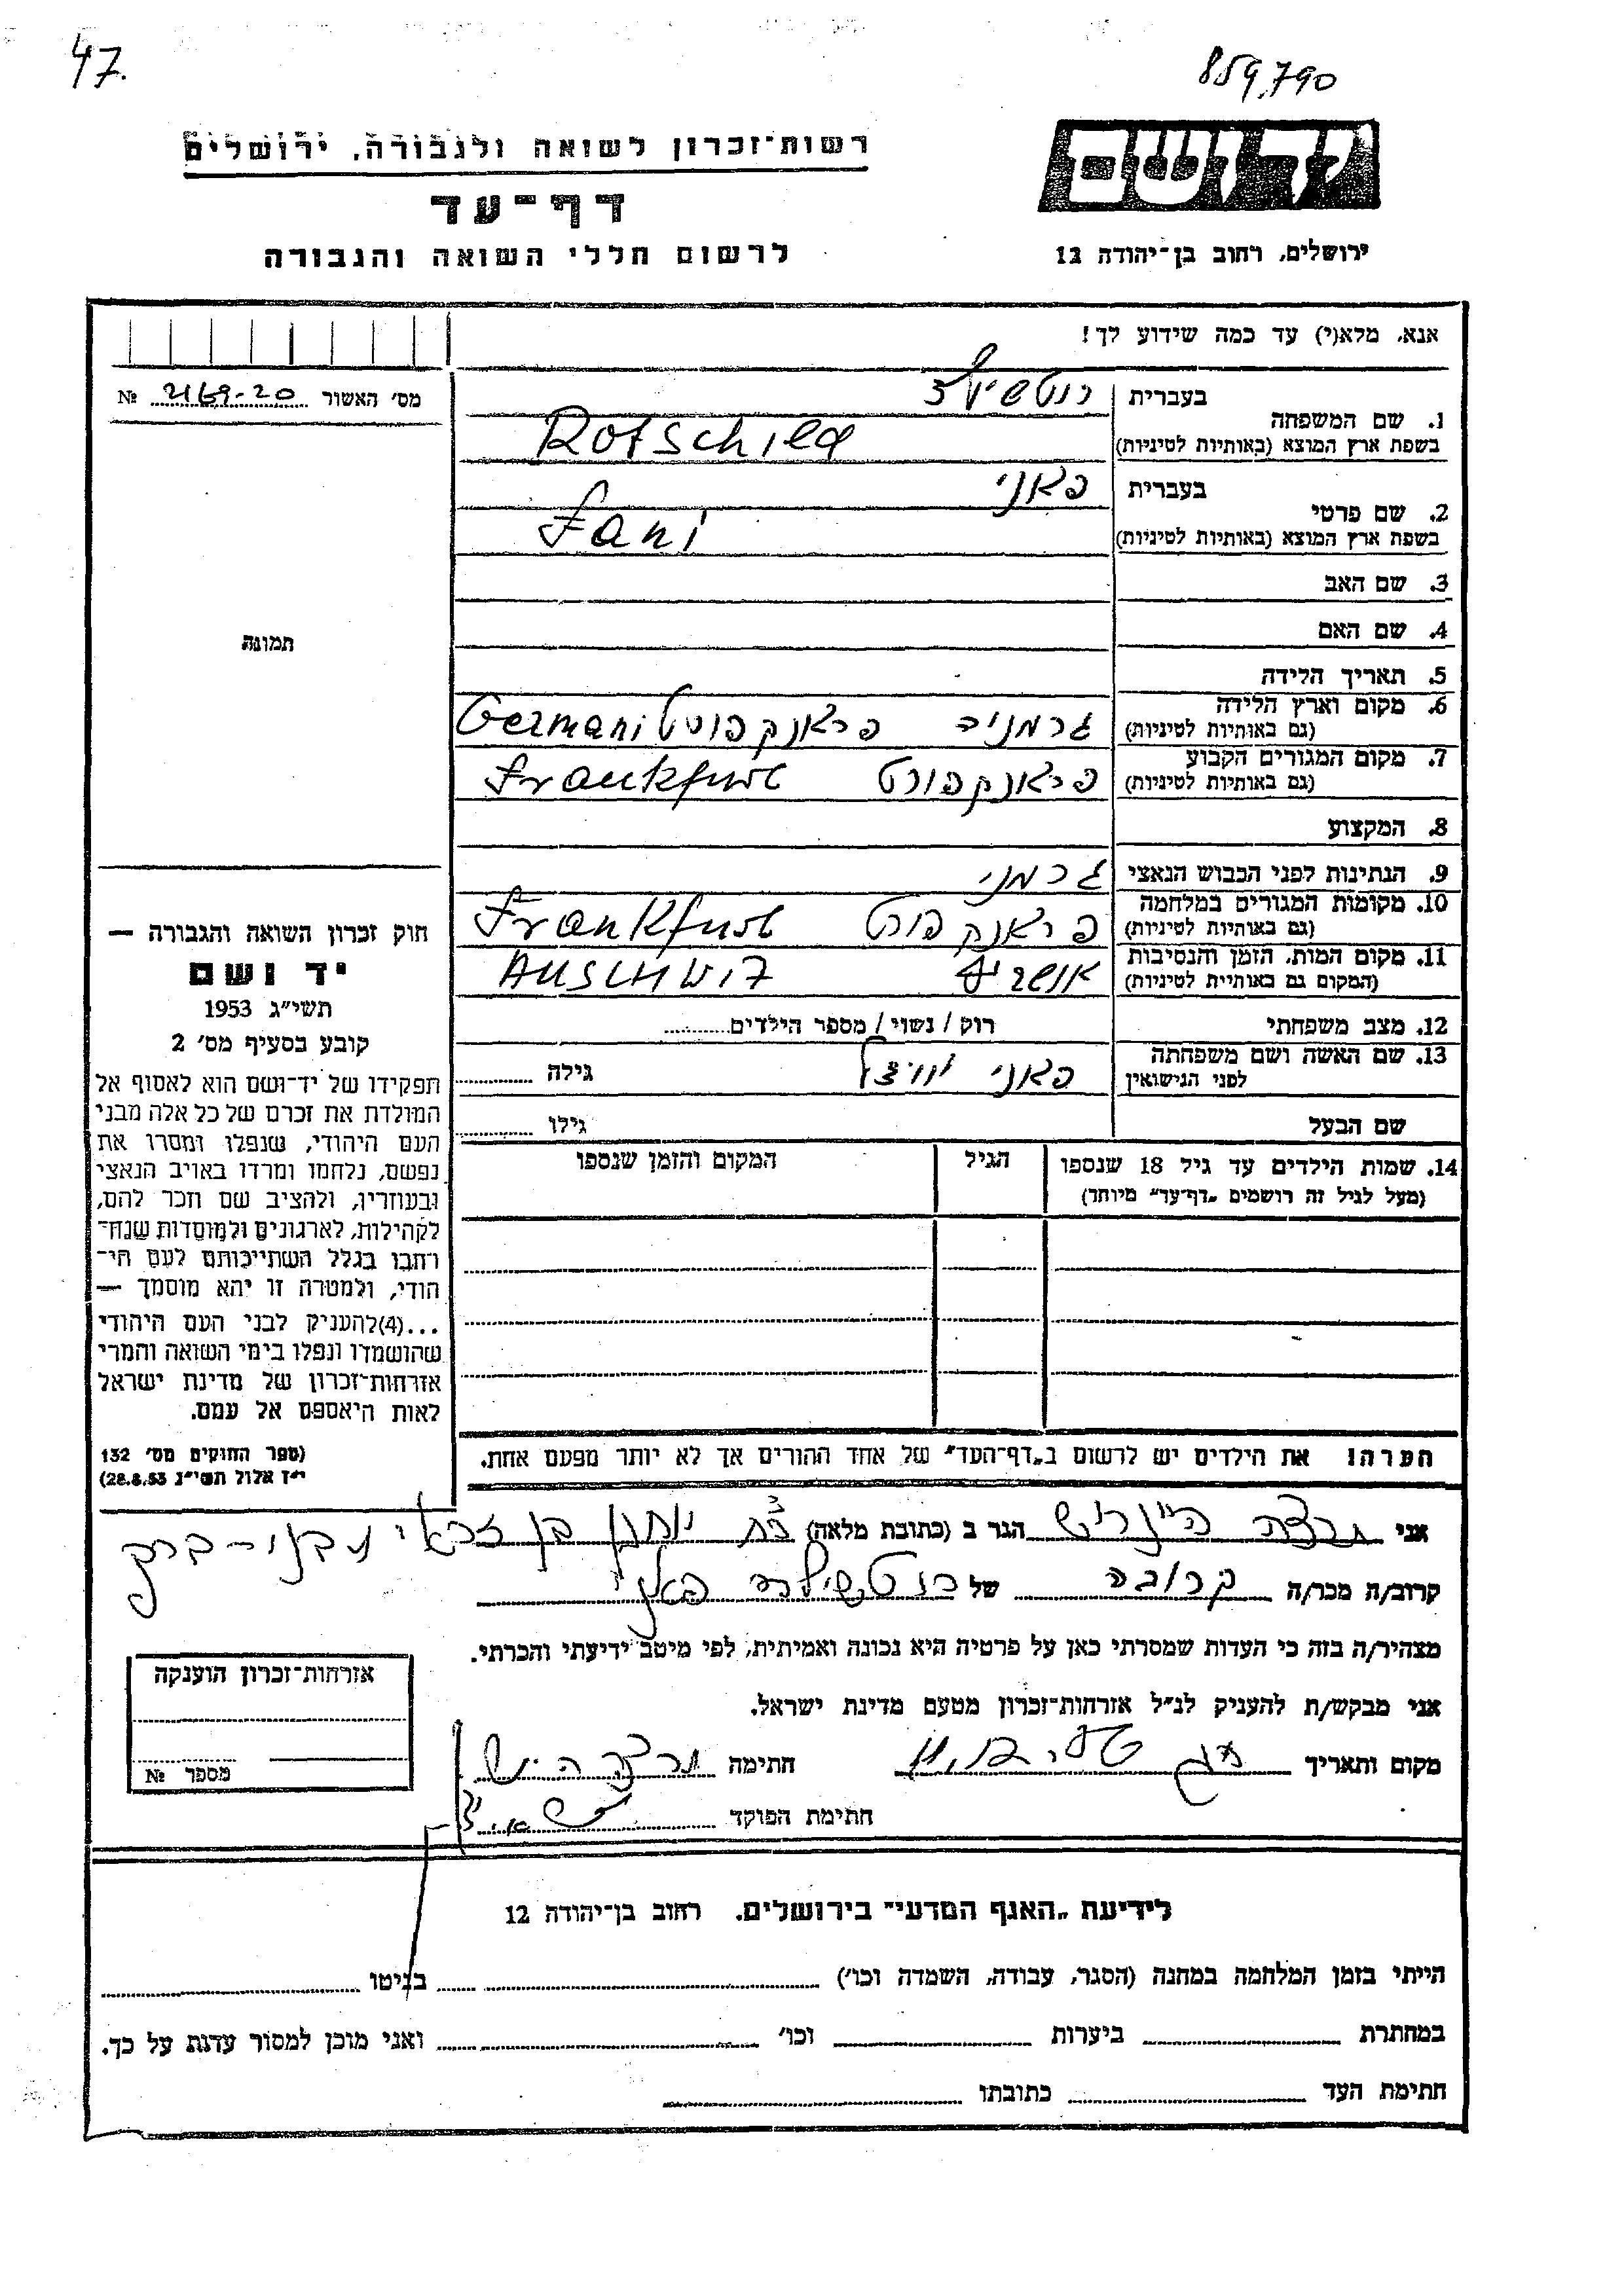 47.
859,790
יד ושם
רשות־זכרון לשואה ולגבורה, ירושלים
דף־עד
לרשום חללי השואה והגבורה
ירושלים, רחוב בן־יהודה 12
אנא, מלא(י) עד כמה שידוע לך!
מס' האשור 2169-20 №
1. שם המשפחה
בעברית
בשפת ארץ המוצא (באותיות לטיניות)
Rotschild
2. שם פרטי
בעברית פאני
בשפת ארץ המוצא (באותיות לטיניות)
Fani
3. שם האב
4. שם האם
תמונה
5. תאריך הלידה
6. מקום וארץ הלידה
(גם באותיות לטיניות)
גרמניה פראנקפורט Germani
7. מקום המגורים הקבוע
(גם באותיות לטיניות)
פראנקפורט Frankfurt
8. המקצוע
9. הנתינות לפני הכבוש הנאצי גרמני
10. מקומות המגורים במלחמה
(גם באותיות לטיניות)
פראנקפורט Frankfurt
11. מקום המות, הזמן והנסיבות
(המקום גם באותיות לטיניות)
AUSCHWITZ
12. מצב משפחתי רוק / נשוי / מספר הילדים
13. שם האשה ושם משפחתה
לפני הנישואין
פאני גילה
שם הבעל גילו
14. שמות הילדים עד גיל 18 שנספו הגיל המקום והזמן שנספו
(מעל לגיל זה רושמים „דף־עד" מיוחד)
הערה! את הילדים יש לרשום ב„דף־העד" של אחד ההורים אך לא יותר מפעם אחת.
חוק זכרון השואה והגבורה —
יד ושם
תשי"ג 1953
קובע בסעיף מס' 2
תפקידו של יד־ושם הוא לאסוף אל
המולדת את זכרם של כל אלה מבני
העם היהודי, שנפלו ומסרו את
נפשם, נלחמו ומרדו באויב הנאצי
ובעוזריו, ולהציב שם וזכר להם,
לקהילות, לארגונים ולמוסדות שנח־
רחבו בגלל השתייכותם לעם הי־
הודי, ולמטרה זו יהא מוסמך —
...(4)להעניק לבני העם היהודי
שהושמדו ונפלו בימי השואה והמרי
אזרחות־זכרון של מדינת ישראל
לאות היאספם אל עמם.
(ספר החוקים מס' 132
י"ז אלול תשי"ג 28.8.53)
אני הגר ב (כתובת מלאה) בן זכאי בני-ברק
קרוב/ה מכר/ה קרובה של רוטשילד פאני
מצהיר/ה בזה כי העדות שמסרתי כאן על פרטיה היא נכונה ואמיתית, לפי מיטב ידיעתי והכרתי.
אני מבקש/ת להעניק לנ"ל אזרחות־זכרון מטעם מדינת ישראל.
מקום ותאריך חתימה
חתימת הפוקד
אזרחות־זכרון הוענקה
מספר №
לידיעת „האגף המדעי" בירושלים, רחוב בן־יהודה 12
הייתי בזמן המלחמה במחנה (הסגר, עבודה, השמדה וכו') בגיטו
במחתרת ביערות וכו' ואני מוכן למסור עדות על כך.
חתימת העד כתובתו